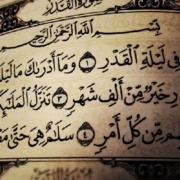 سورة القدر
بِسْمِ اللَّهِ الرَّحْمَٰنِ الرَّحِيمِ
فِي لَيْلَةِ الْقَدْرِ ١ وَمَا أَدْرَىٰكَ مَا لَيْلَ
خَيْرٌ مِّنْ أَلْفِ شَهْرٍ ٣ تَنَزَّلُ الْمَلَٰٓئِكَ
مِّن كُلِّ أَمْرٍ ٤ سَلَٰمٌ هِيَ حَتَّىٰ مَ